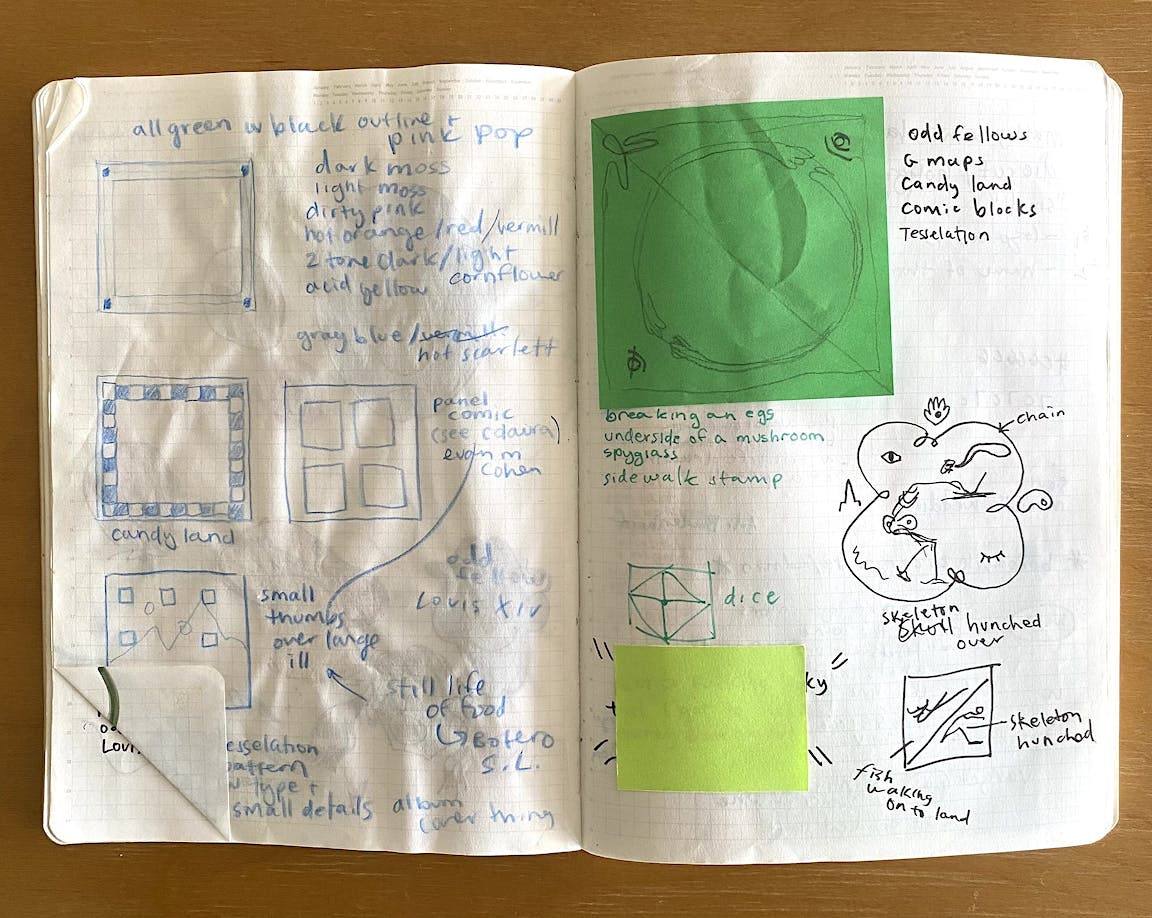 all green w black outline +
pink pop
dark moss
light moss
dirty pink
hot orange/red/vermill
2 tone dark/light
cornflower
acid yellow
gray blue/
hot scarlett
candy land
panel
comic
(see
evan m
Cohen
small
thumbs
over large
ill
odd
fellow
Louis XIV
still life
of food
Botero
S.L.
esselation
pattern
w type +
small details
album
cover thing
odd fellows
G maps
Candy land
comic blocks
Tesselation
breaking an egg
underside of a mushroom
spyglass
sidewalk stamp
chain
dice
skeleton
skull hunched
over
ky"
skeleton
hunched
fish
walking
on to land